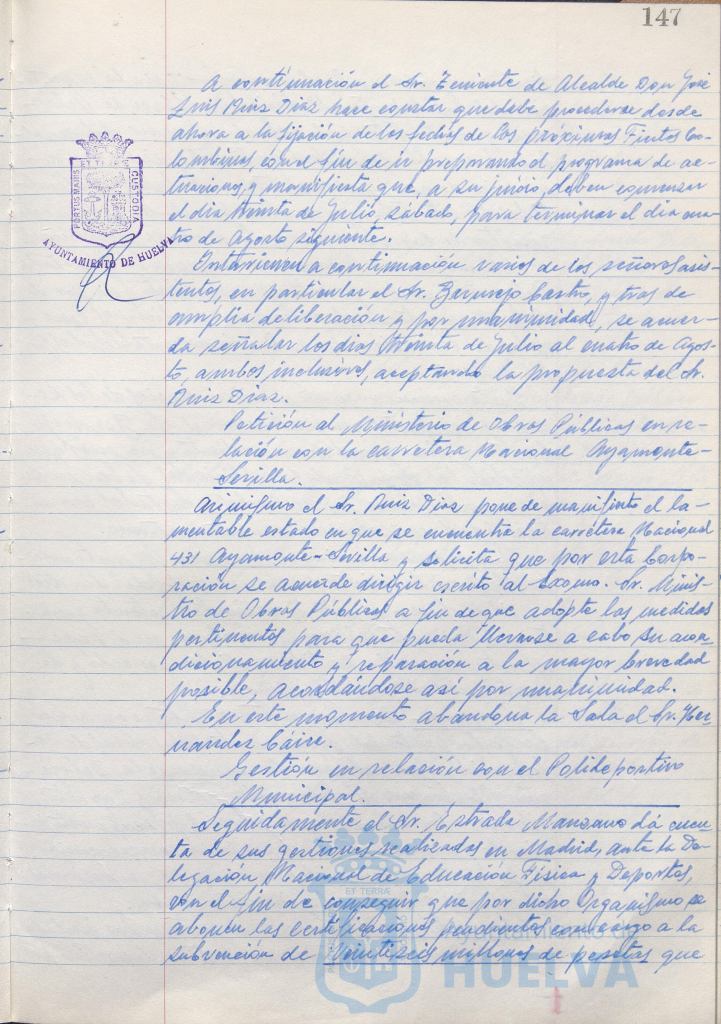 147
A continuación el Sr. Teniente de Alcalde Don José
Luis Ruiz Diaz hace constar que debe procederse desde
ahora a la fijación de las fechas de las próximas Fiestas Co-
lombinas, con el fin de ir preparando el programa de ac-
tuaciones, y manifiesta que, a su juicio, deben comenzar
el dia treinta de Julio, sábado, para terminar el dia cua-
tro de Agosto siguiente.
Intervienen a continuación varios de los señores asis-
tentes, en particular el Sr. Castro, y tras de
amplia deliberación y por unanimidad, se acuer-
da señalar los dias treinta de Julio al cuatro de Agos-
to, ambos inclusives, aceptando la propuesta del Sr.
Ruiz Diaz.
Petición al Ministerio de Obras Públicas en re-
lación con la carretera Nacional Ayamonte-
Sevilla.
Asimismo el Sr. Ruiz Diaz pone de manifiesto el la-
mentable estado en que se encuentra la carretera Nacional
431 Ayamonte-Sevilla y solicita que por esta Corpo-
ración se acuerde dirigir escrito al Excmo. Sr. Minis-
tro de Obras Públicas a fin de que adopte las medidas
pertinentes para que pueda llevarse a cabo su acon-
dicionamiento y reparación a la mayor brevedad
posible, acordándose así por unanimidad.
En este momento abandona la Sala el Sr. Her-
nandez Cáire.
Gestión en relación con el Polideportivo
Municipal.
Seguidamente el Sr. Estrada Manzano dá cuen-
ta de sus gestiones realizadas en Madrid, ante la De-
legación Nacional de Educación Física y Deportes,
con el fin de conseguir que por dicho Organismo se
abonen las certificaciones pendientes con cargo a la
subvención de Veintiseis millones de pesetas que
PORTUS MARIS ET TERRAE CUSTODIA
AYUNTAMIENTO DE HUELVA
ET TERRAE
HUELVA